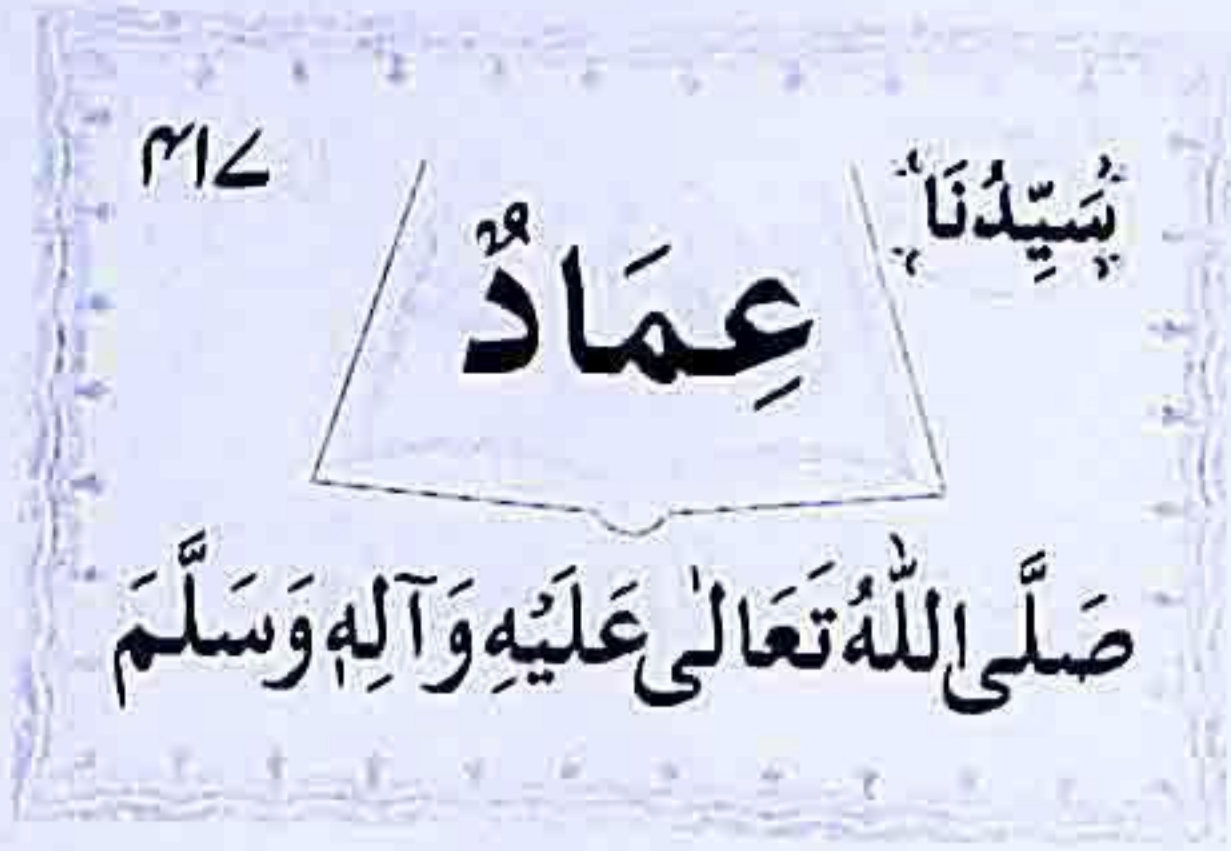 سَيِّدُنَا
۴۱۷
عِمَادٌ
صَلَّى اللّٰهُ تَعَالٰى عَلَيْهِ وَآلِهٖ وَسَلَّمَ